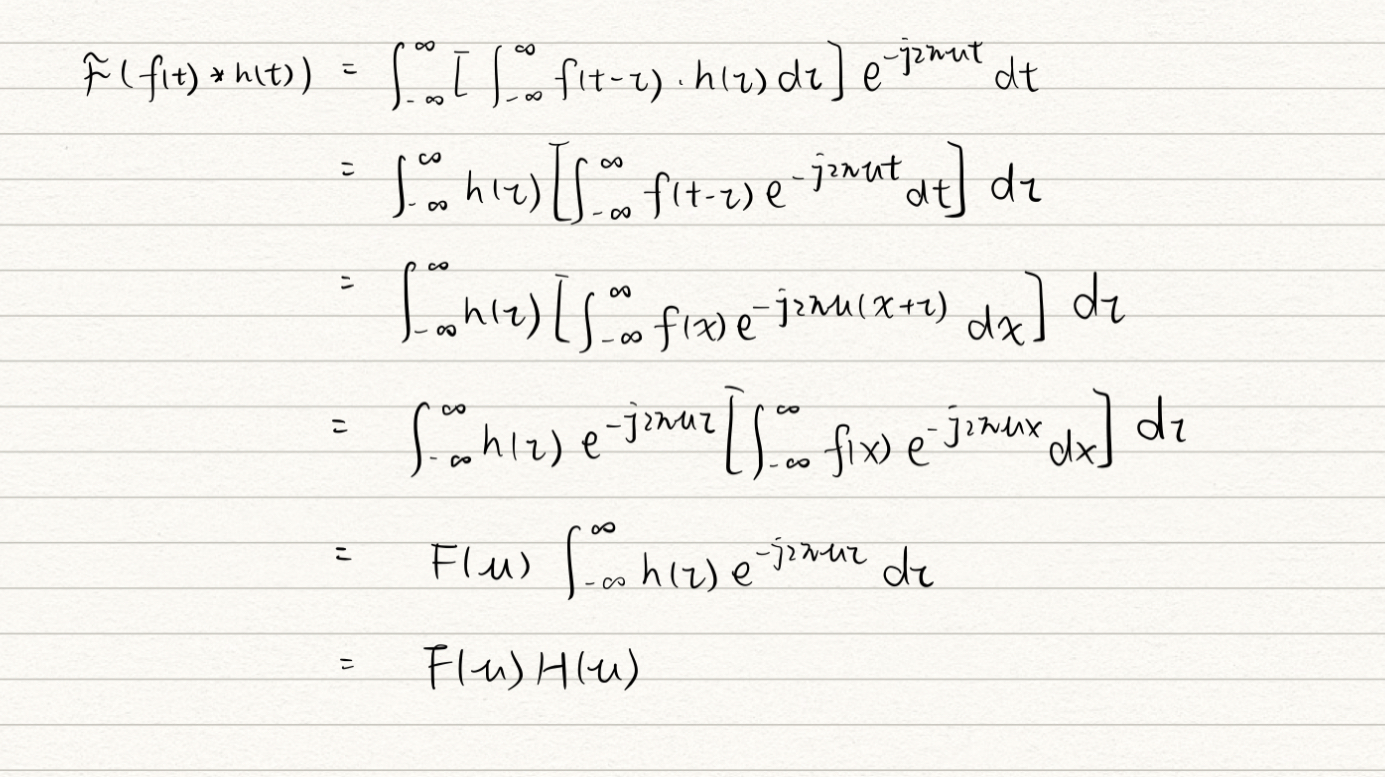 F̃(f(t) * h(t)) = ∫_{-∞}^{∞} [∫_{-∞}^{∞} f(t-τ) · h(τ) dτ] e^{-j2πut} dt
= ∫_{-∞}^{∞} h(τ) [∫_{-∞}^{∞} f(t-τ) e^{-j2πut} dt] dτ
= ∫_{-∞}^{∞} h(τ) [∫_{-∞}^{∞} f(x) e^{-j2πu(x+τ)} dx] dτ
= ∫_{-∞}^{∞} h(τ) e^{-j2πuτ} [∫_{-∞}^{∞} f(x) e^{-j2πux} dx] dτ
= F(u) ∫_{-∞}^{∞} h(τ) e^{-j2πuτ} dτ
= F(u) H(u)